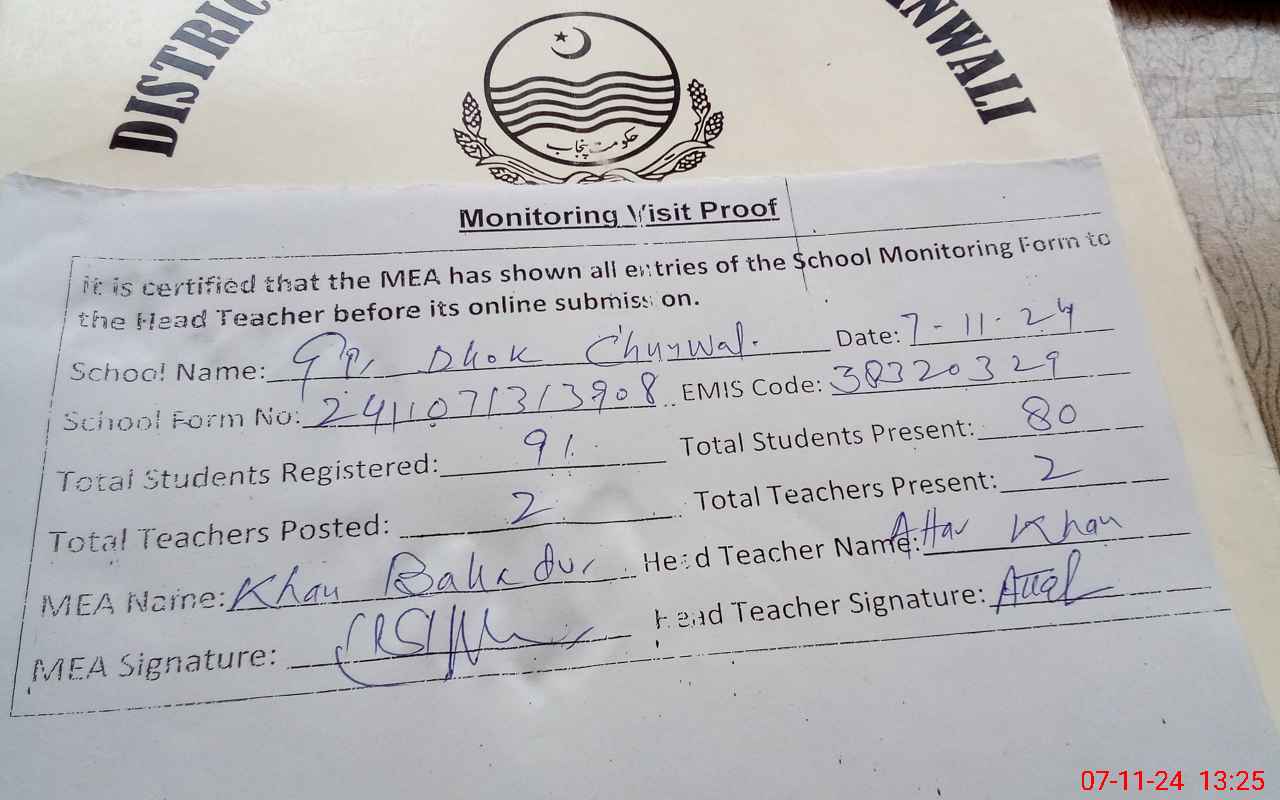 DISTRIC
NWALI
حکومت پنجاب
Monitoring Visit Proof
It is certified that the MEA has shown all entries of the School Monitoring Form to
the Head Teacher before its online submission.
School Name: Dhok Date: 7-11-24
School Form No: EMIS Code: 38320329
Total Students Registered: 91. Total Students Present: 80
Total Teachers Posted: 2 Total Teachers Present: 2
MEA Name: Khan Bahadur Head Teacher Name: Attar Khan
MEA Signature: Head Teacher Signature:
07-11-24 13:25